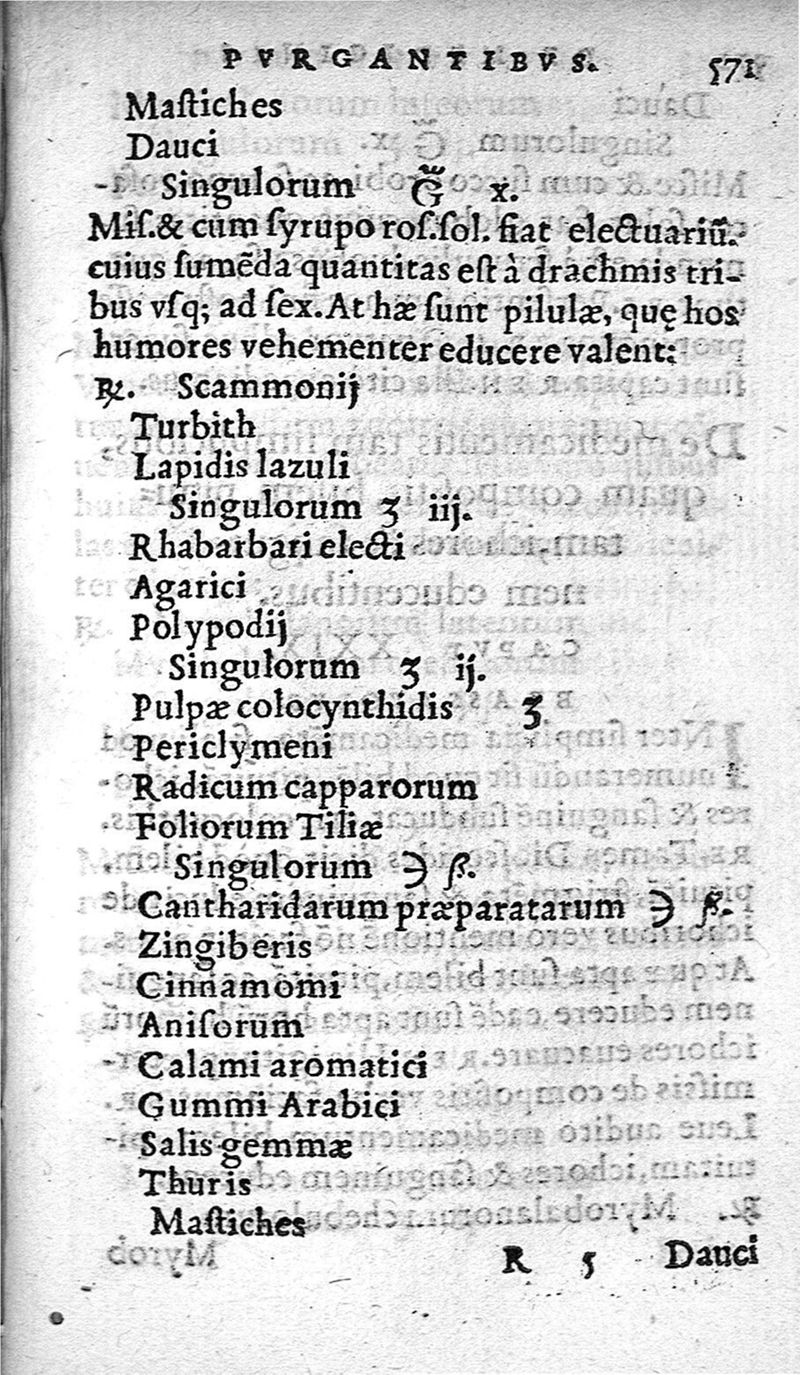 PVRGANTIBVS. 571
Maſtiches
Dauci
Singulorum G̃ x.
Miſ. & cum ſyrupo roſ. ſol. fiat electuariũ.
cuius ſumẽda quantitas eſt à drachmis tri-
bus vſq; ad ſex. At hæ ſunt pilulæ, quę hos
humores vehementer educere valent:
℞. Scammonij
Turbith
Lapidis lazuli
Singulorum ʒ iij.
Rhabarbari electi
Agarici
Polypodij
Singulorum ʒ ij.
Pulpæ colocynthidis ʒ
Periclymeni
Radicum capparorum
Foliorum Tiliæ
Singulorum ℈ ß.
Cantharidarum præparatarum ℈ ß.
Zingiberis
Cinnamomi
Aniſorum
Calami aromatici
Gummi Arabici
Salis gemmæ
Thuris
Maſtiches
R 5 Dauci